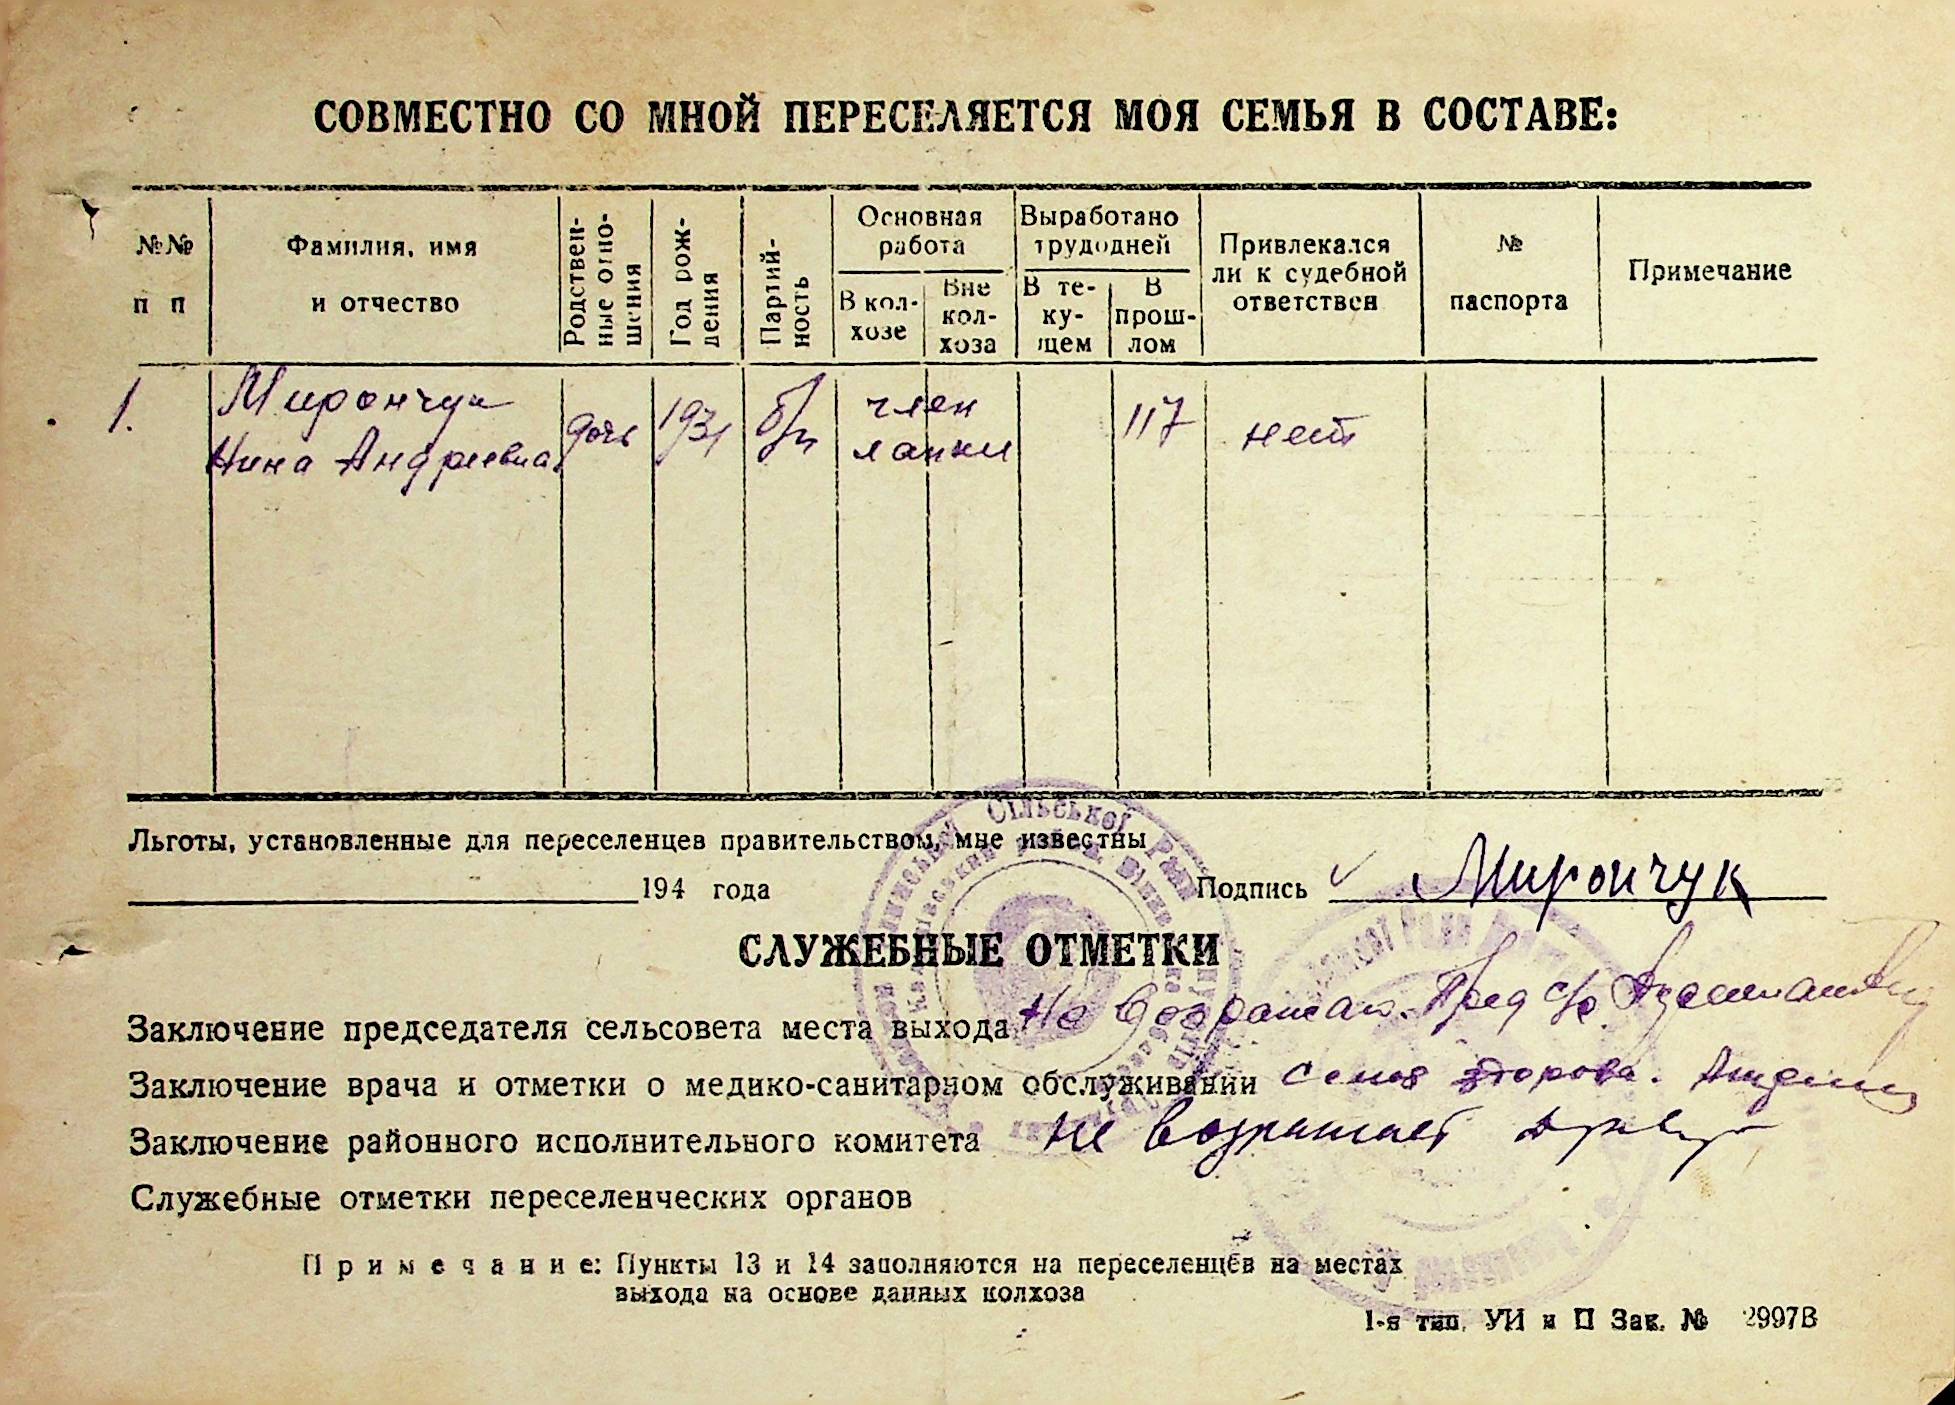 СОВМЕСТНО СО МНОЙ ПЕРЕСЕЛЯЕТСЯ МОЯ СЕМЬЯ В СОСТАВЕ:
№№ п п
Фамилия, имя и отчество
Родственные отношения
Год рождения
Партийность
Основная работа
В колхозе
Вне колхоза
Выработано трудодней
В текущем
В прошлом
Привлекался ли к судебной ответствен
№ паспорта
Примечание
1. Мирончук дочь 1931 б/п член 117 нет
Нина Андреевна ланки
Льготы, установленные для переселенцев правительством, мне известны
194 года Подпись Мирончук
СЛУЖЕБНЫЕ ОТМЕТКИ
Заключение председателя сельсовета места выхода Не возражаю. Пред с/с
Заключение врача и отметки о медико-санитарном обслуживании Семья здорова.
Заключение районного исполнительного комитета Не возражает
Служебные отметки переселенческих органов
Примечание: Пункты 13 и 14 заполняются на переселенцев на местах
выхода на основе данных колхоза
1-я тип. УИ и П Зак. № 2997В
Сільської Ради